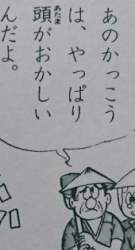 あのかっこう
は、やっぱり
頭がおかしい
んだよ。